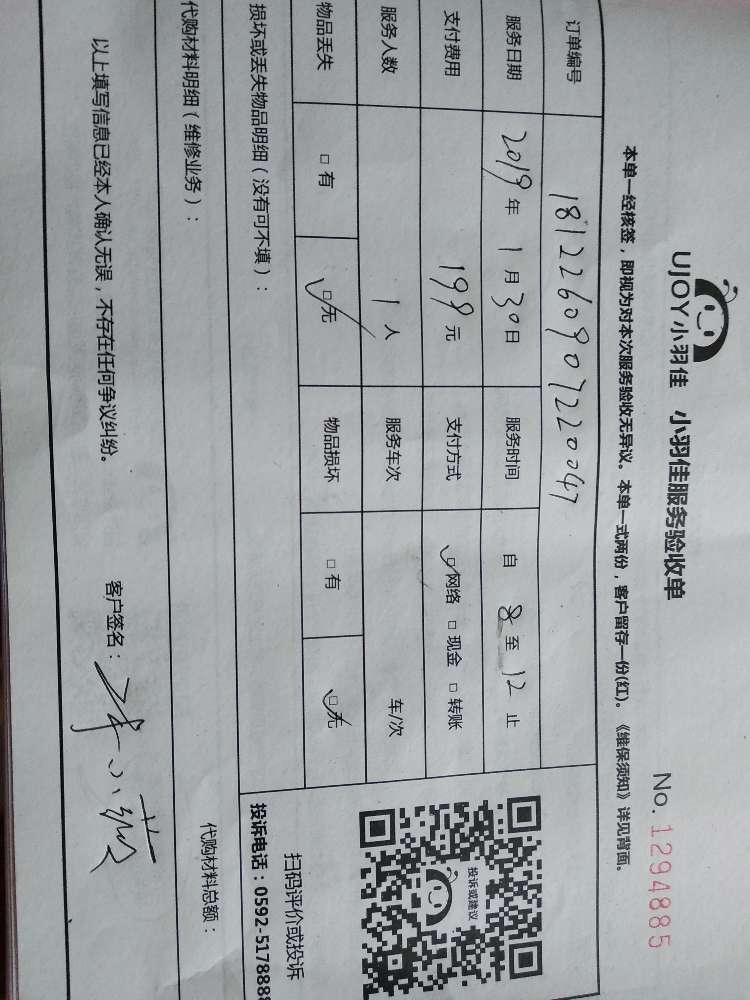 UJOY小羽佳 小羽佳服务验收单 No. 1294885
本单一经核签，即视为对本次服务验收无异议。本单一式两份，客户留存一份(红)。《维保须知》详见背面。
订单编号 181226090722004７
服务日期 2019年1月30日 服务时间 自8至12止
支付费用 199元 支付方式 □网络 □现金 □转账
服务人数 1人 服务车次 车/次
物品丢失 □有 □无 物品损坏 □有 □无
投诉或建议
扫码评价或投诉
投诉电话：0592-5178888
损坏或丢失物品明细（没有可不填）：
代购材料明细（维修业务）： 代购材料总额：
以上填写信息已经本人确认无误，不存在任何争议纠纷。 客户签名：